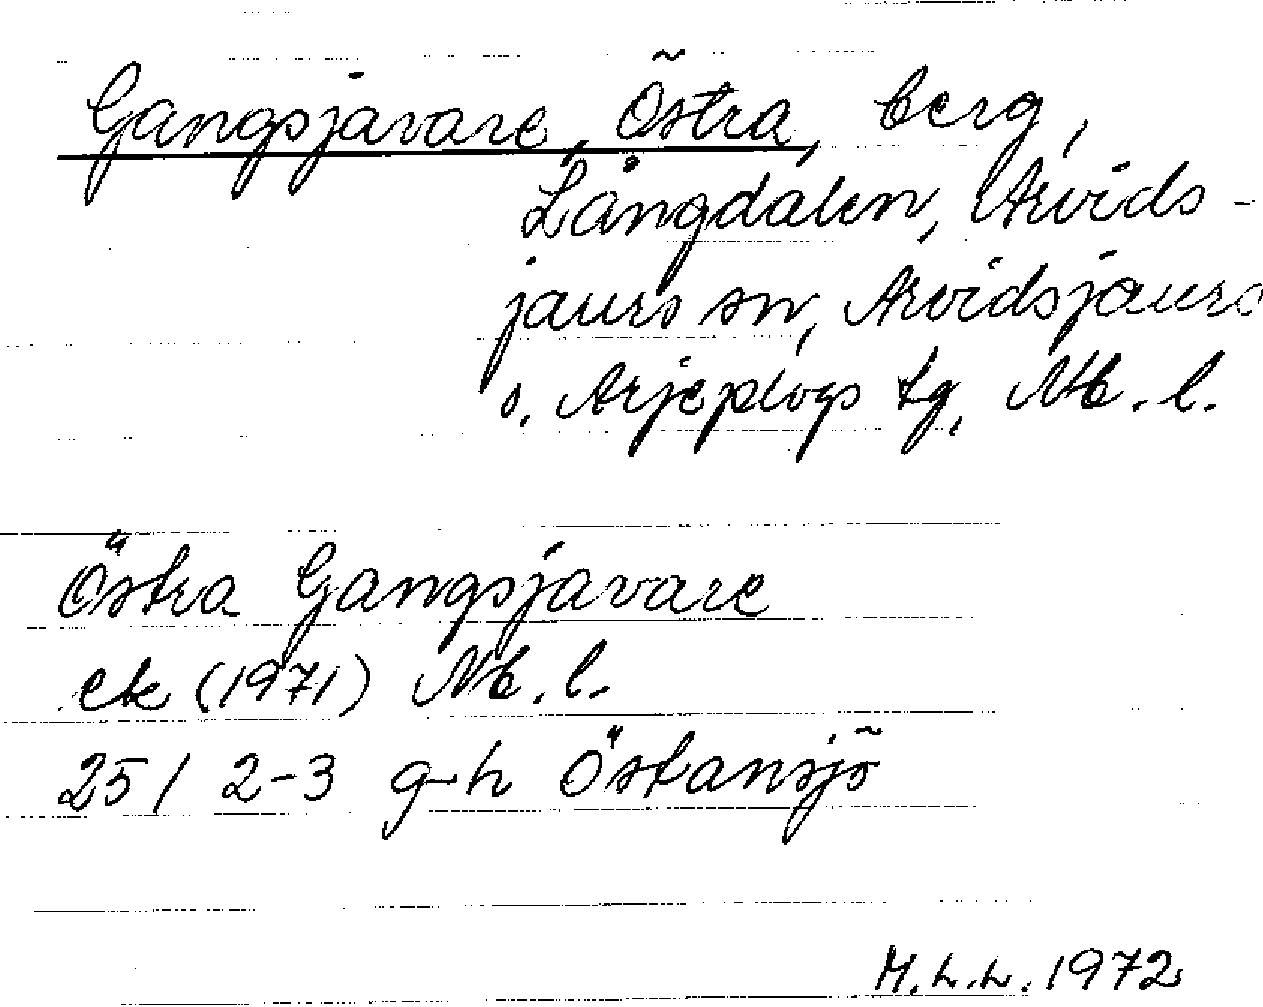 Gangsjavare, Östra, berg,
Långdalen, Arvids-
jaurs sn, Arvidsjaurs
o. Arjeplogs tg, Nb. l.
Östra Gangsjavare
ek (1971) Nb. l.
25 I 2-3 g-h Östansjö
M.L.L. 1972